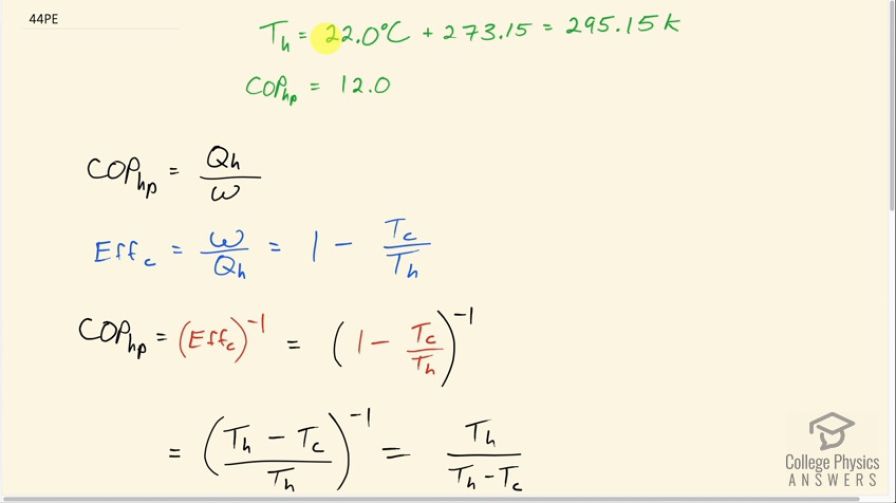 44PE
T_h = 22.0°C + 273.15 = 295.15 K
COP_hp = 12.0
COP_hp = Q_h / W
Eff_c = W / Q_h = 1 - T_c / T_h
COP_hp = (Eff_c)^-1 = (1 - T_c / T_h)^-1
= ((T_h - T_c) / T_h)^-1 = T_h / (T_h - T_c)
College Physics
ANSWERS